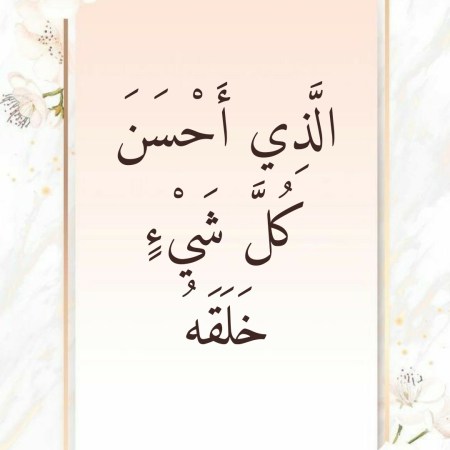 الَّذِي أَحْسَنَ
كُلَّ شَيْءٍ
خَلَقَهُ